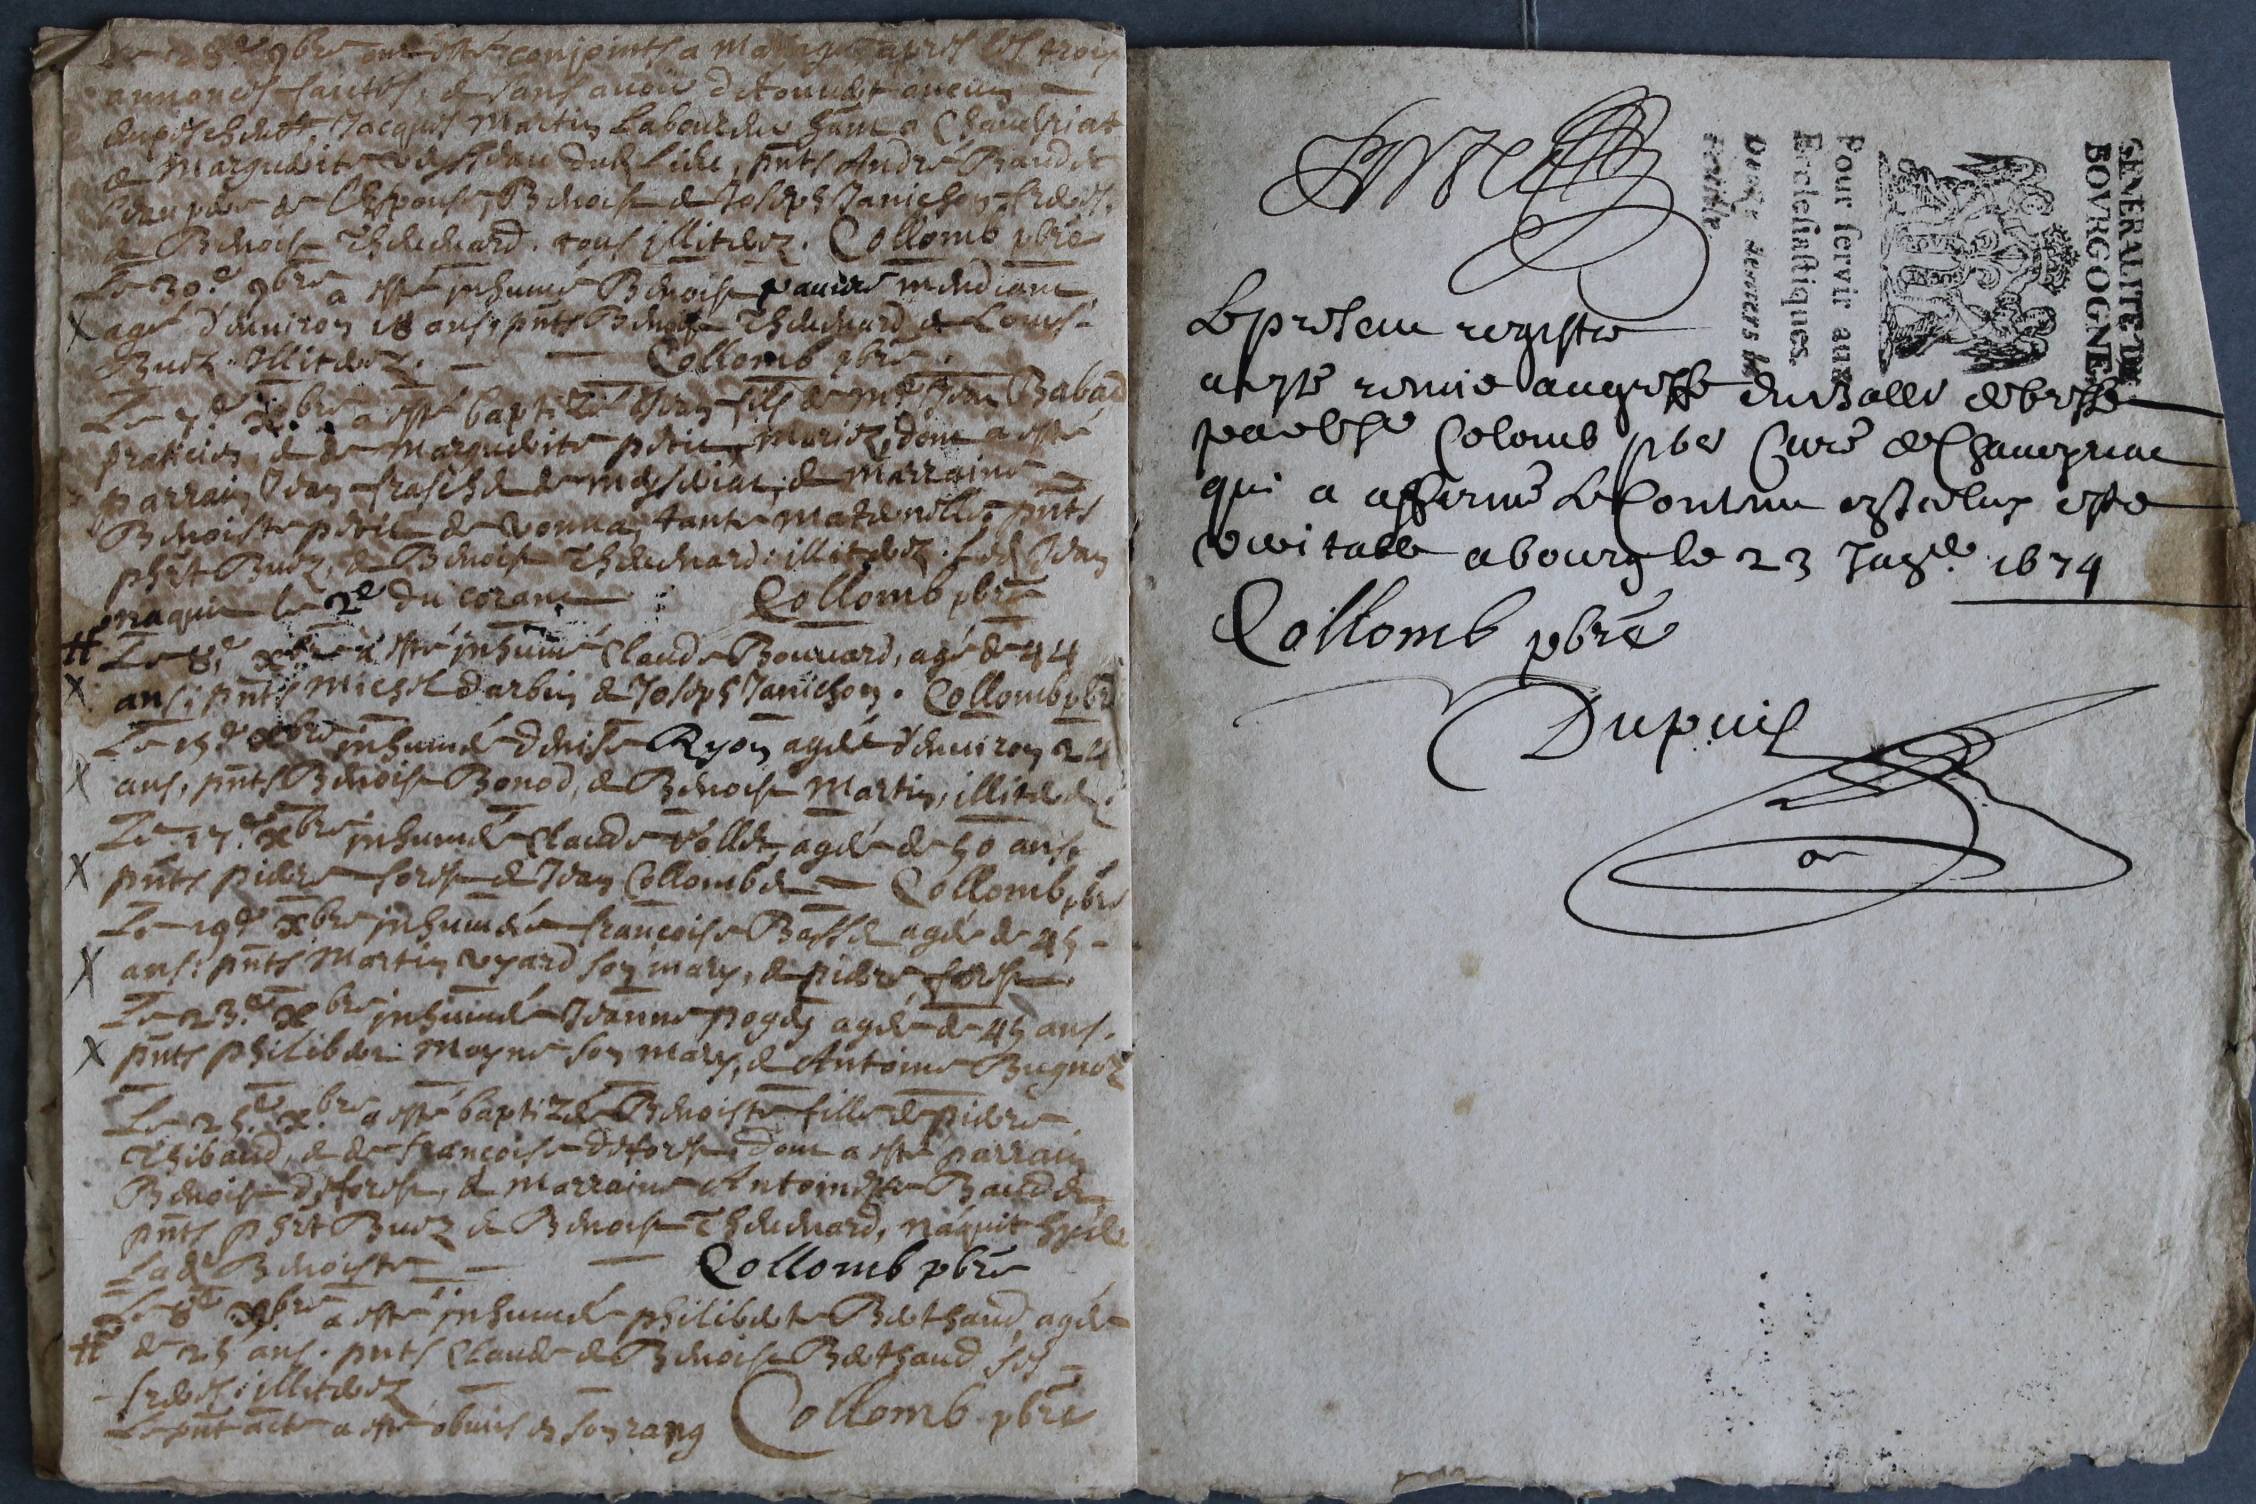 Le 28e 9bre ont esté conjoints a mariage apres les trois
annonces faictes, & sans avoir descouvert aucun
empeschement, Jacques Martin Laboureur hant a Chaveyriat
& Marguerite pnts André Baudet
beaupere de l'Espouse, Benoist & Joseph Janichon freres,
& Benoist Thevenard, tous illiterez. Collomb pbre
Le 30e 9bre a esté inhumé Benoist pauvre mendiant
agé d'environ 18 ans, pnts Benoist Thevenard & Louys
Buez Illiterez. Collomb pbre.
Le 7e Xbre a esté baptizé Jean fils de Me Jean Babad
praticien, & de Marguerite mariez, dont a esté
parrain Jean & marraine
Benoiste de Vonna, tante maternelle, pnts
phrt Buez, & Benoist Thevenard illiterez. Led Jean
naquit le 2e du corant Collomb pbre
# Le 8e Xbre a esté inhumé Claude Bouvard, agé de 44
X ans, pnts Michel Darbin & Joseph Janichon. Collomb pbre
Le 15e Xbre inhumée Denise Ryon agée d'environ 24
X ans, pnts Benoist Bonod, & Benoist Martin, illiterez.
Le 17e Xbre inhumée Claude Vollet, agée de 50 ans,
X pnts pierre forest & Jean Collombet Collomb pbre
Le 19e Xbre inhumée françoise Basset agée de 45
X ans, pnts Martin Vyard son mary, & pierre forest.
Le 23e Xbre inhumée Jeanne pogen agée de 45 ans.
X pnts philibert Moyne son mary, & Antoine Bugnoz
Le 25e Xbre a esté baptizée Benoiste fille de pierre
Thibaud, & de françoise deforest, dont a esté parrain
Benoist deforest, & marraine Antoinette Baudet,
pnts phrt Buez & Benoist Thevenard, naquit hyer
Lade Benoiste Collomb pbre
Le 8e 9bre a esté inhumée philiberte Berthaud, agée
# de 25 ans. pnts Claude & Benoist Berthaud ses
freres illiterez
Le pnt acte a esté obmis en son rang Collomb pbre
GENERALITE DE
BOVRGOGNE
Pour servir aux
Ecclesiastiques.
Douze deniers la
feuille.
Le present registre
a esté remis au greffe du Balle de bresse
par Colomb pbre Curé de Chaveyriat
qui a affirmé le Contenu esté
veritable a bourg le 23 Janr 1674
Collomb pbre
Dupuis